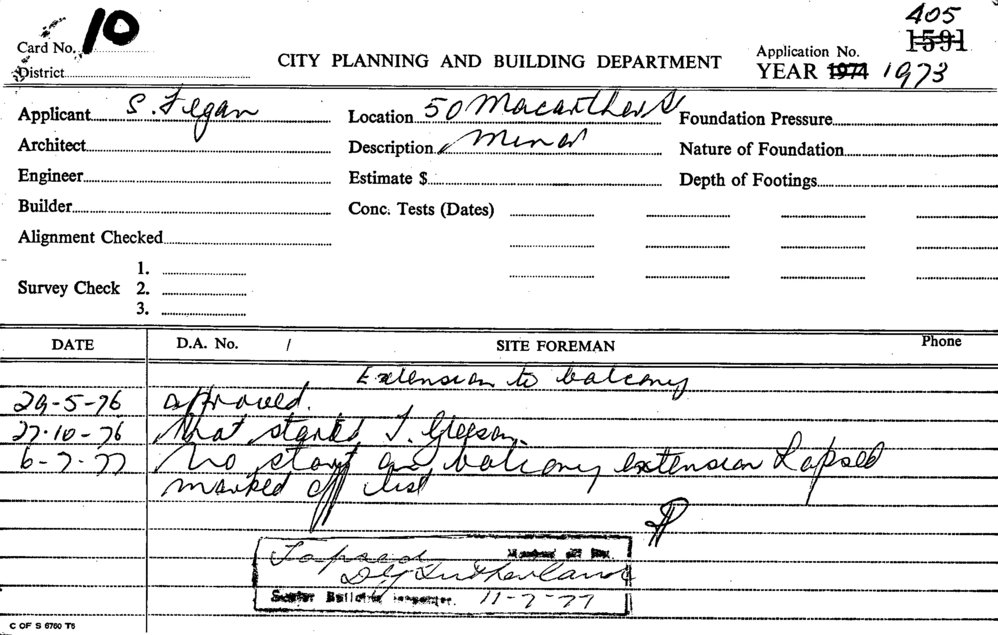 10
Card No.
District
CITY PLANNING AND BUILDING DEPARTMENT
405
Application No. 1591
YEAR 1974 1973
Applicant S. Fegan
Location 50 Macarthur St
Foundation Pressure
Architect
Description Minor
Nature of Foundation
Engineer
Estimate $
Depth of Footings
Builder
Conc. Tests (Dates)
Alignment Checked
Survey Check 1.
2.
3.
DATE D.A. No. / SITE FOREMAN Phone
Extension to balcony
29-5-76 approved.
27-10-76 not started J. Gleeson.
6-7-77 No start on balcony extension Lapsed
marked off list
Lapsed Marked off
D G Sutherland
Senior Building Inspector. 11-7-77
C OF S 6760 T5